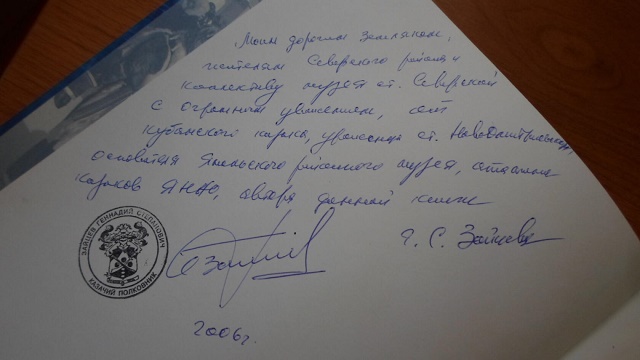 Моим дорогим землякам,
жителям Северского района и
коллективу музея ст. Северской
с огромным уважением, от
кубанского казака, уроженца ст. Новодмитриевской,
основателя Ямальского районного музея, атамана
казаков ЯНАО, автора данной книги
Г. С. Зайцева
ЗАЙЦЕВ ГЕННАДИЙ СТЕПАНОВИЧ
КАЗАЧИЙ ПОЛКОВНИК
2006 г.